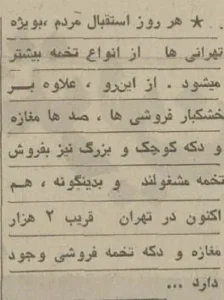 ★ هر روز استقبال مردم ،بویژه
تهرانی ها از انواع تخمه بیشتر
میشود . از این‌رو ، علاوه بر
خشکبار فروشی ها ، صد ها مغازه
و دکه کوچک و بزرگ نیز بفروش
تخمه مشغولند و بدینگونه ، هم
اکنون در تهران قریب ۲ هزار
مغازه و دکه تخمه فروشی وجود
دارد ...